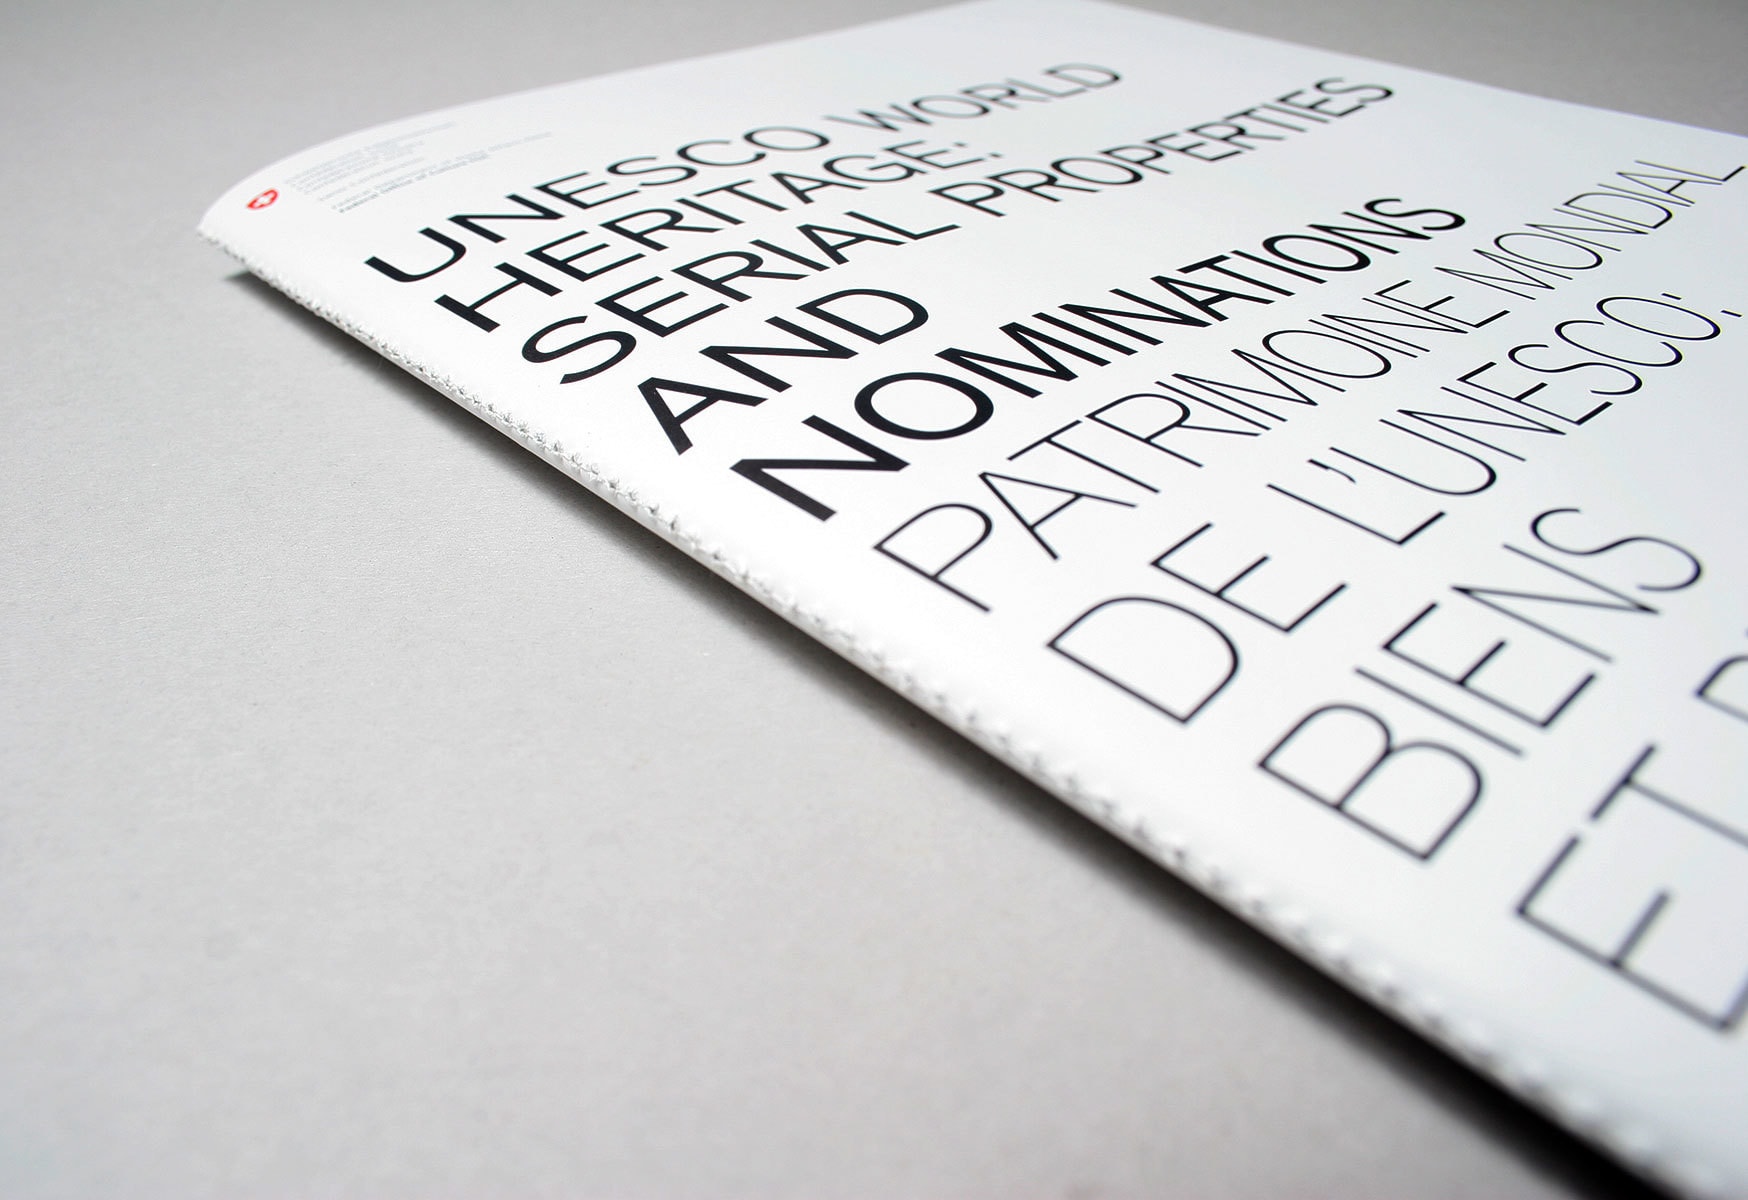 UNESCO WORLD
HERITAGE:
SERIAL PROPERTIES
AND
NOMINATIONS
PATRIMOINE MONDIAL
DE L'UNESCO:
BIENS
ET